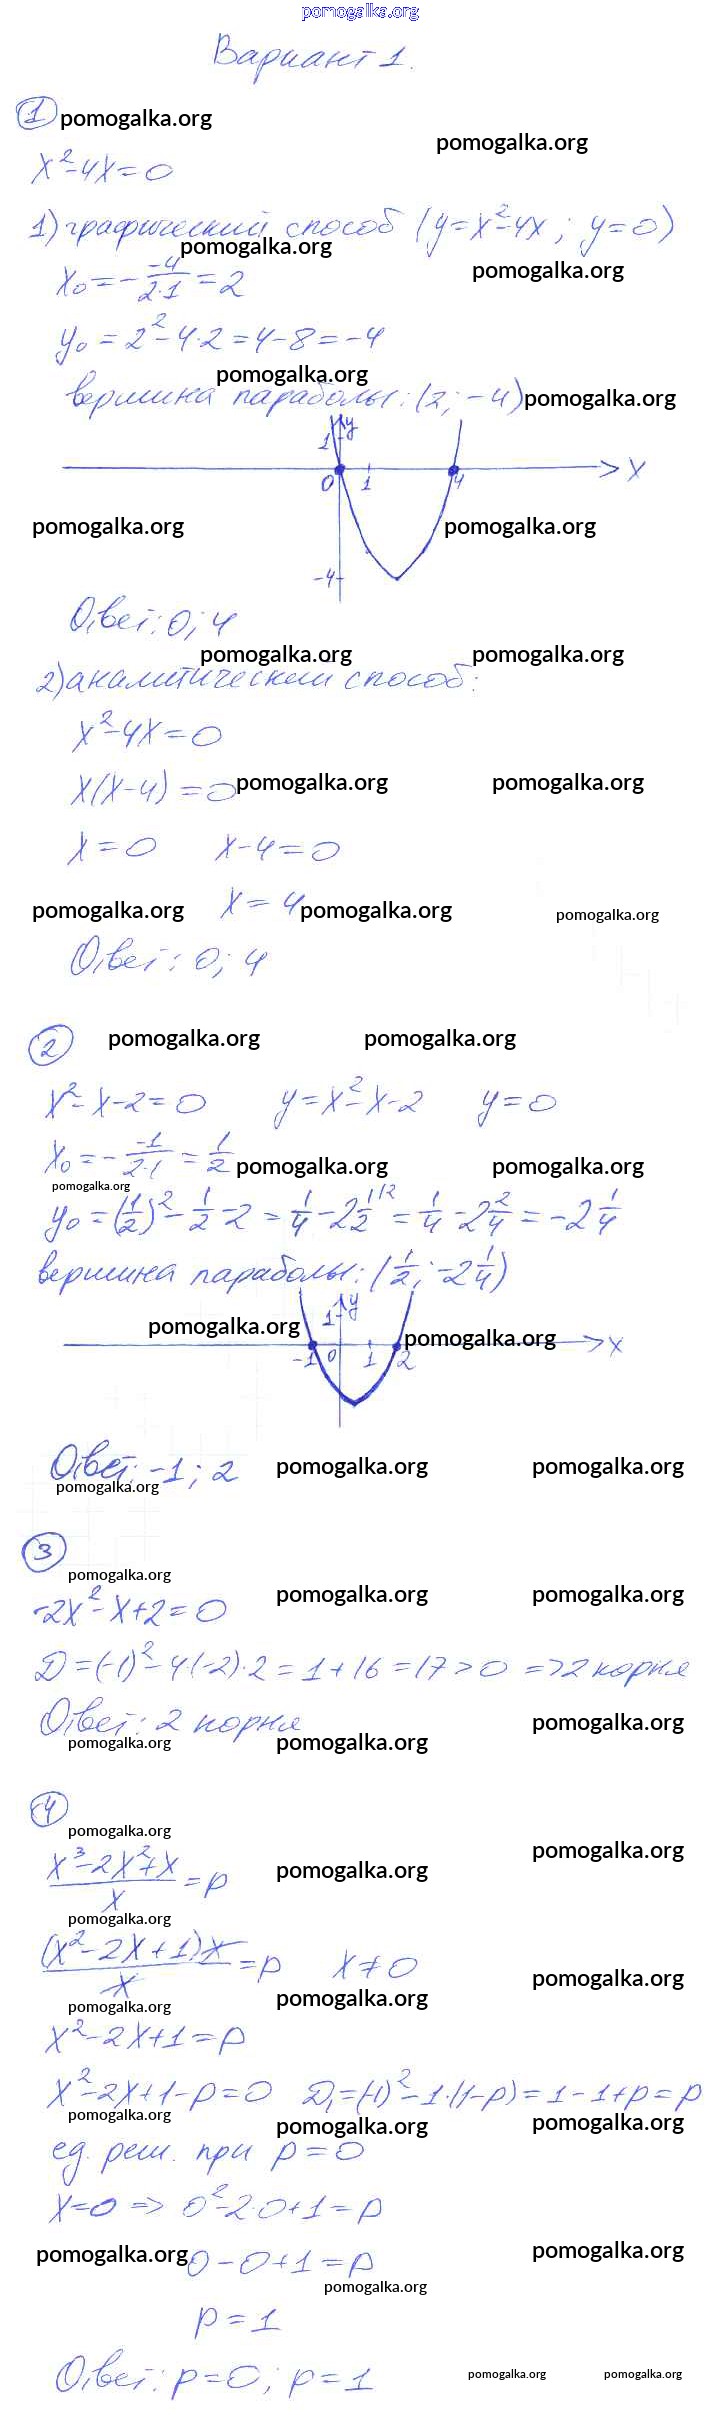 pomogalka.org
Вариант 1.
1 pomogalka.org
pomogalka.org
x²-4x=0
1) графический способ (y=x²-4x; y=0)
pomogalka.org
x₀=-\frac{-4}{2·1}=2 pomogalka.org
y₀=2²-4·2=4-8=-4
pomogalka.org
вершина параболы: (2; -4) pomogalka.org
y
1
x
0 1 4
pomogalka.org pomogalka.org
-4
Ответ: 0; 4
pomogalka.org pomogalka.org
2) аналитический способ:
x²-4x=0
x(x-4)=0 pomogalka.org pomogalka.org
x=0 x-4=0
pomogalka.org x=4 pomogalka.org pomogalka.org
Ответ: 0; 4
2 pomogalka.org pomogalka.org
x²-x-2=0 y=x²-x-2 y=0
x₀=-\frac{-1}{2·1}=\frac{1}{2} pomogalka.org pomogalka.org
pomogalka.org
y₀=(\frac{1}{2})²-\frac{1}{2}-2=\frac{1}{4}-2\frac{1}{2}^{\2}=\frac{1}{4}-2\frac{2}{4}=-2\frac{1}{4}
вершина параболы: (\frac{1}{2}; -2\frac{1}{4})
y
1
pomogalka.org pomogalka.org
x
-1 0 1 2
Ответ: -1; 2 pomogalka.org pomogalka.org
pomogalka.org
3
pomogalka.org
pomogalka.org pomogalka.org
-2x²-x+2=0
D=(-1)²-4(-2)·2=1+16=17>0 =>2 корня
Ответ: 2 корня pomogalka.org
pomogalka.org pomogalka.org
4
pomogalka.org
pomogalka.org
\frac{x³-2x²+x}{x}=p pomogalka.org
pomogalka.org
\frac{(x²-2x+1)x}{x}=p x≠0 pomogalka.org
pomogalka.org pomogalka.org
x²-2x+1=p
x²-2x+1-p=0 D₁=(-1)²-1·(1-p)=1-1+p=p
pomogalka.org pomogalka.org pomogalka.org
ед. реш. при p=0
x=0 => 0²-2·0+1=p
pomogalka.org 0-0+1=p pomogalka.org
pomogalka.org
p=1
Ответ: p=0; p=1 pomogalka.org pomogalka.org